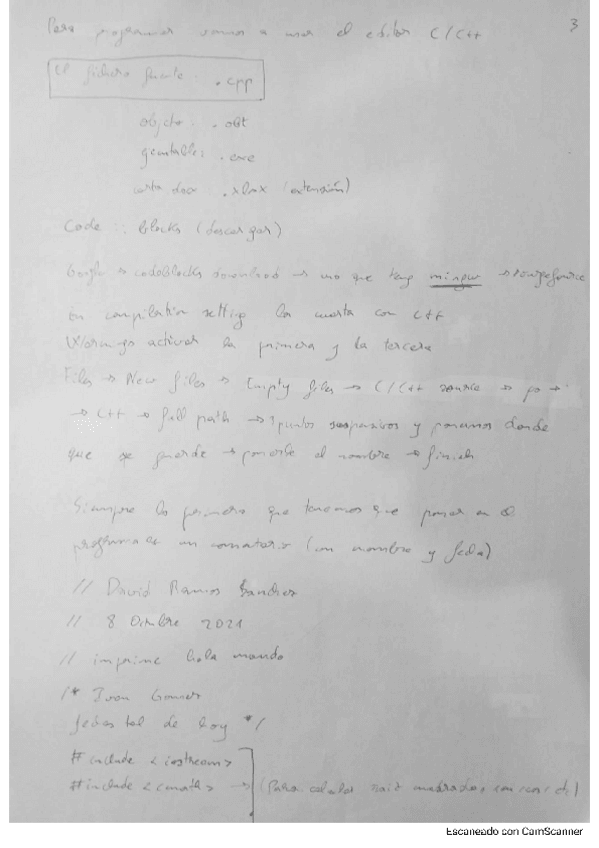 Para programar vamos a usar el editor C/C++ 3
El fichero fuente: .cpp
objeto: .obt
ejecutable: .exe
.xlsx (extensión)
Code :: Blocks (descargar)
Google → codeblocks download → uno que tenga mingw → sourceforge
En compilation setting la cuarta con C++
Warnings activar la primera y la tercera
Files → New files → Empty files → C/C++ source → go →
→ C++ → full path → 3 puntos suspensivos y ponemos donde
que se guarde → ponerle el nombre → finish
Siempre lo primero que tenemos que poner en el
programa es un comentario (con nombre y fecha)
// David Ramos Sanchez
// 8 Octubre 2021
// imprime hola mundo
/*
fecha tal de hoy */
#include <iostream>
#include <cmath> → (Para calcular raiz cuadrada, etc)
Escaneado con CamScanner